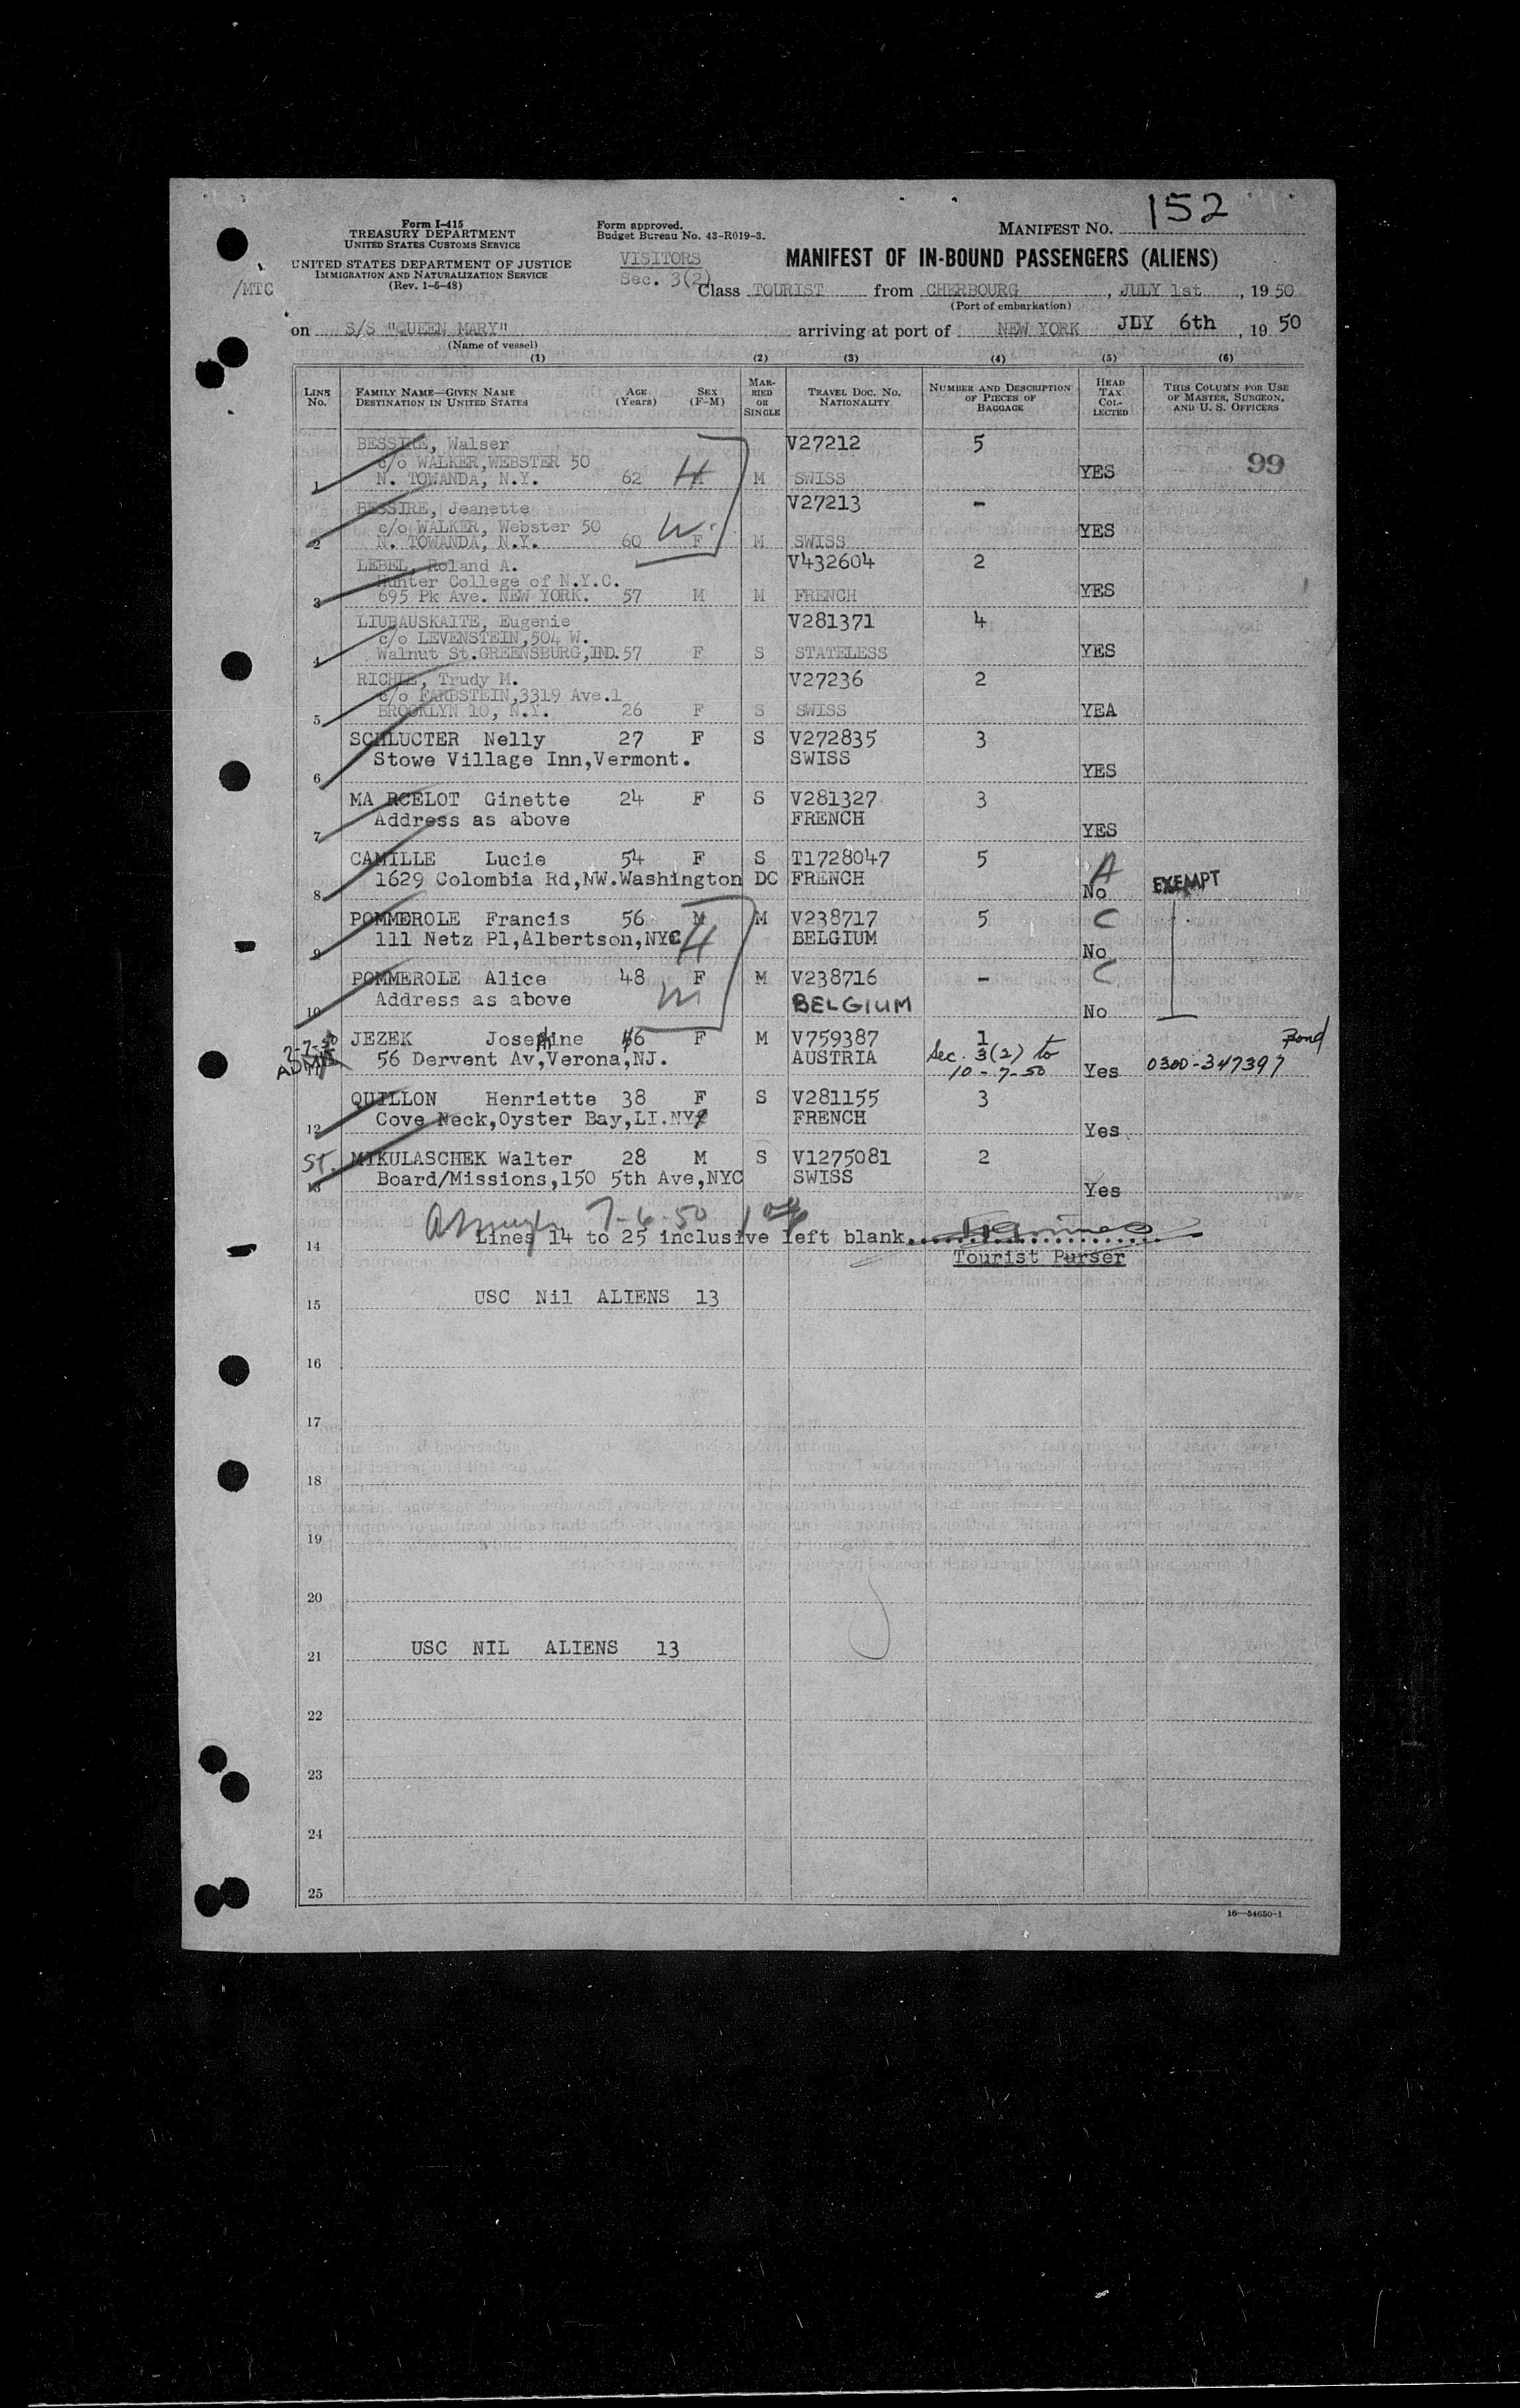 152
Form I-415
TREASURY DEPARTMENT
UNITED STATES CUSTOMS SERVICE
UNITED STATES DEPARTMENT OF JUSTICE
IMMIGRATION AND NATURALIZATION SERVICE
(Rev. 1-5-48)
/MTC
Form approved.
Budget Bureau No. 43-R019-3.
VISITORS
Sec. 3(2)
MANIFEST NO.
MANIFEST OF IN-BOUND PASSENGERS (ALIENS)
Class TOURIST from CHERBOURG, JULY 1st, 1950
(Port of embarkation)
on S/S "QUEEN MARY" arriving at port of NEW YORK JLY 6th, 19 50
(Name of vessel)
(1) (2) (3) (4) (5) (6)
LINE No. FAMILY NAME—GIVEN NAME DESTINATION IN UNITED STATES AGE (Years) SEX (F-M) MARRIED OR SINGLE TRAVEL DOC. NO. NATIONALITY NUMBER AND DESCRIPTION OF PIECES OF BAGGAGE HEAD TAX COLLECTED THIS COLUMN FOR USE OF MASTER, SURGEON, AND U. S. OFFICERS
BESSIRE, Walser V27212 5
c/o WALKER,WEBSTER 50 99
1 N. TOWANDA, N.Y. 62 M H M SWISS YES
BESSIRE, Jeanette V27213 -
c/o WALKER, Webster 50 W
2 N. TOWANDA, N.Y. 60 F M SWISS YES
LEBEL, Roland A. V432604 2
Hunter College of N.Y.C.
3 695 Pk Ave. NEW YORK. 57 M M FRENCH YES
LIUBAUSKAITE, Eugenie V281371 4
c/o LEVENSTEIN,504 W.
4 Walnut St.GREENSBURG,IND.57 F S STATELESS YES
RICHLE, Trudy M. V27236 2
c/o FARBSTEIN,3319 Ave.l
5 BROOKLYN 10, N.Y. 26 F S SWISS YEA
SCHLUCTER Nelly 27 F S V272835 3
Stowe Village Inn,Vermont. SWISS
6 YES
MA RCELOT Ginette 24 F S V281327 3
Address as above FRENCH
7 YES
CAMILLE Lucie 54 F S T1728047 5 A
1629 Colombia Rd,NW.Washington DC FRENCH EXEMPT
8 No
POMMEROLE Francis 56 M M V238717 5 C
111 Netz Pl,Albertson,NYC H BELGIUM
9 No
POMMEROLE Alice 48 F M V238716 - C
Address as above W BELGIUM
10 No
7-7-50 JEZEK Josephine 46 F M V759387 1 Bond
ADMIT 56 Dervent Av,Verona,NJ. AUSTRIA Sec. 3(2) to
10-7-50 Yes 0300-347397
QUILLON Henriette 38 F S V281155 3
Cove Neck,Oyster Bay,LI.NY FRENCH
12 Yes
ST. MIKULASCHEK Walter 28 M S V1275081 2
Board/Missions,150 5th Ave,NYC SWISS
13 Yes
7-6-50
14 Lines 14 to 25 inclusive left blank.
Tourist Purser
15 USC Nil ALIENS 13
16
17
18
19
20
21 USC NIL ALIENS 13
22
23
24
25
16—54650-1